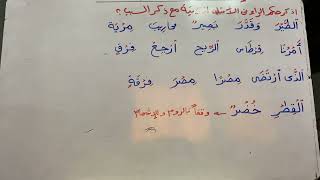 اذكر حكم الراء في الأمثلة الآتية مع ذكر السبب؟
الْخَيْرَ وَقَدَّرَ نَصِيرٌ محاريبَ مِرْيَةٍ
أَمَرْنَا قِرْطَاسٍ الرِّيحَ ارْجِعْ فِرْقٍ
الَّذِى ارْتَضَى مِصْرًا مِصْرَ فِرْقَةٍ
الْقِطْرِ خُضْرٌ وقفاً بالروم والإشمام